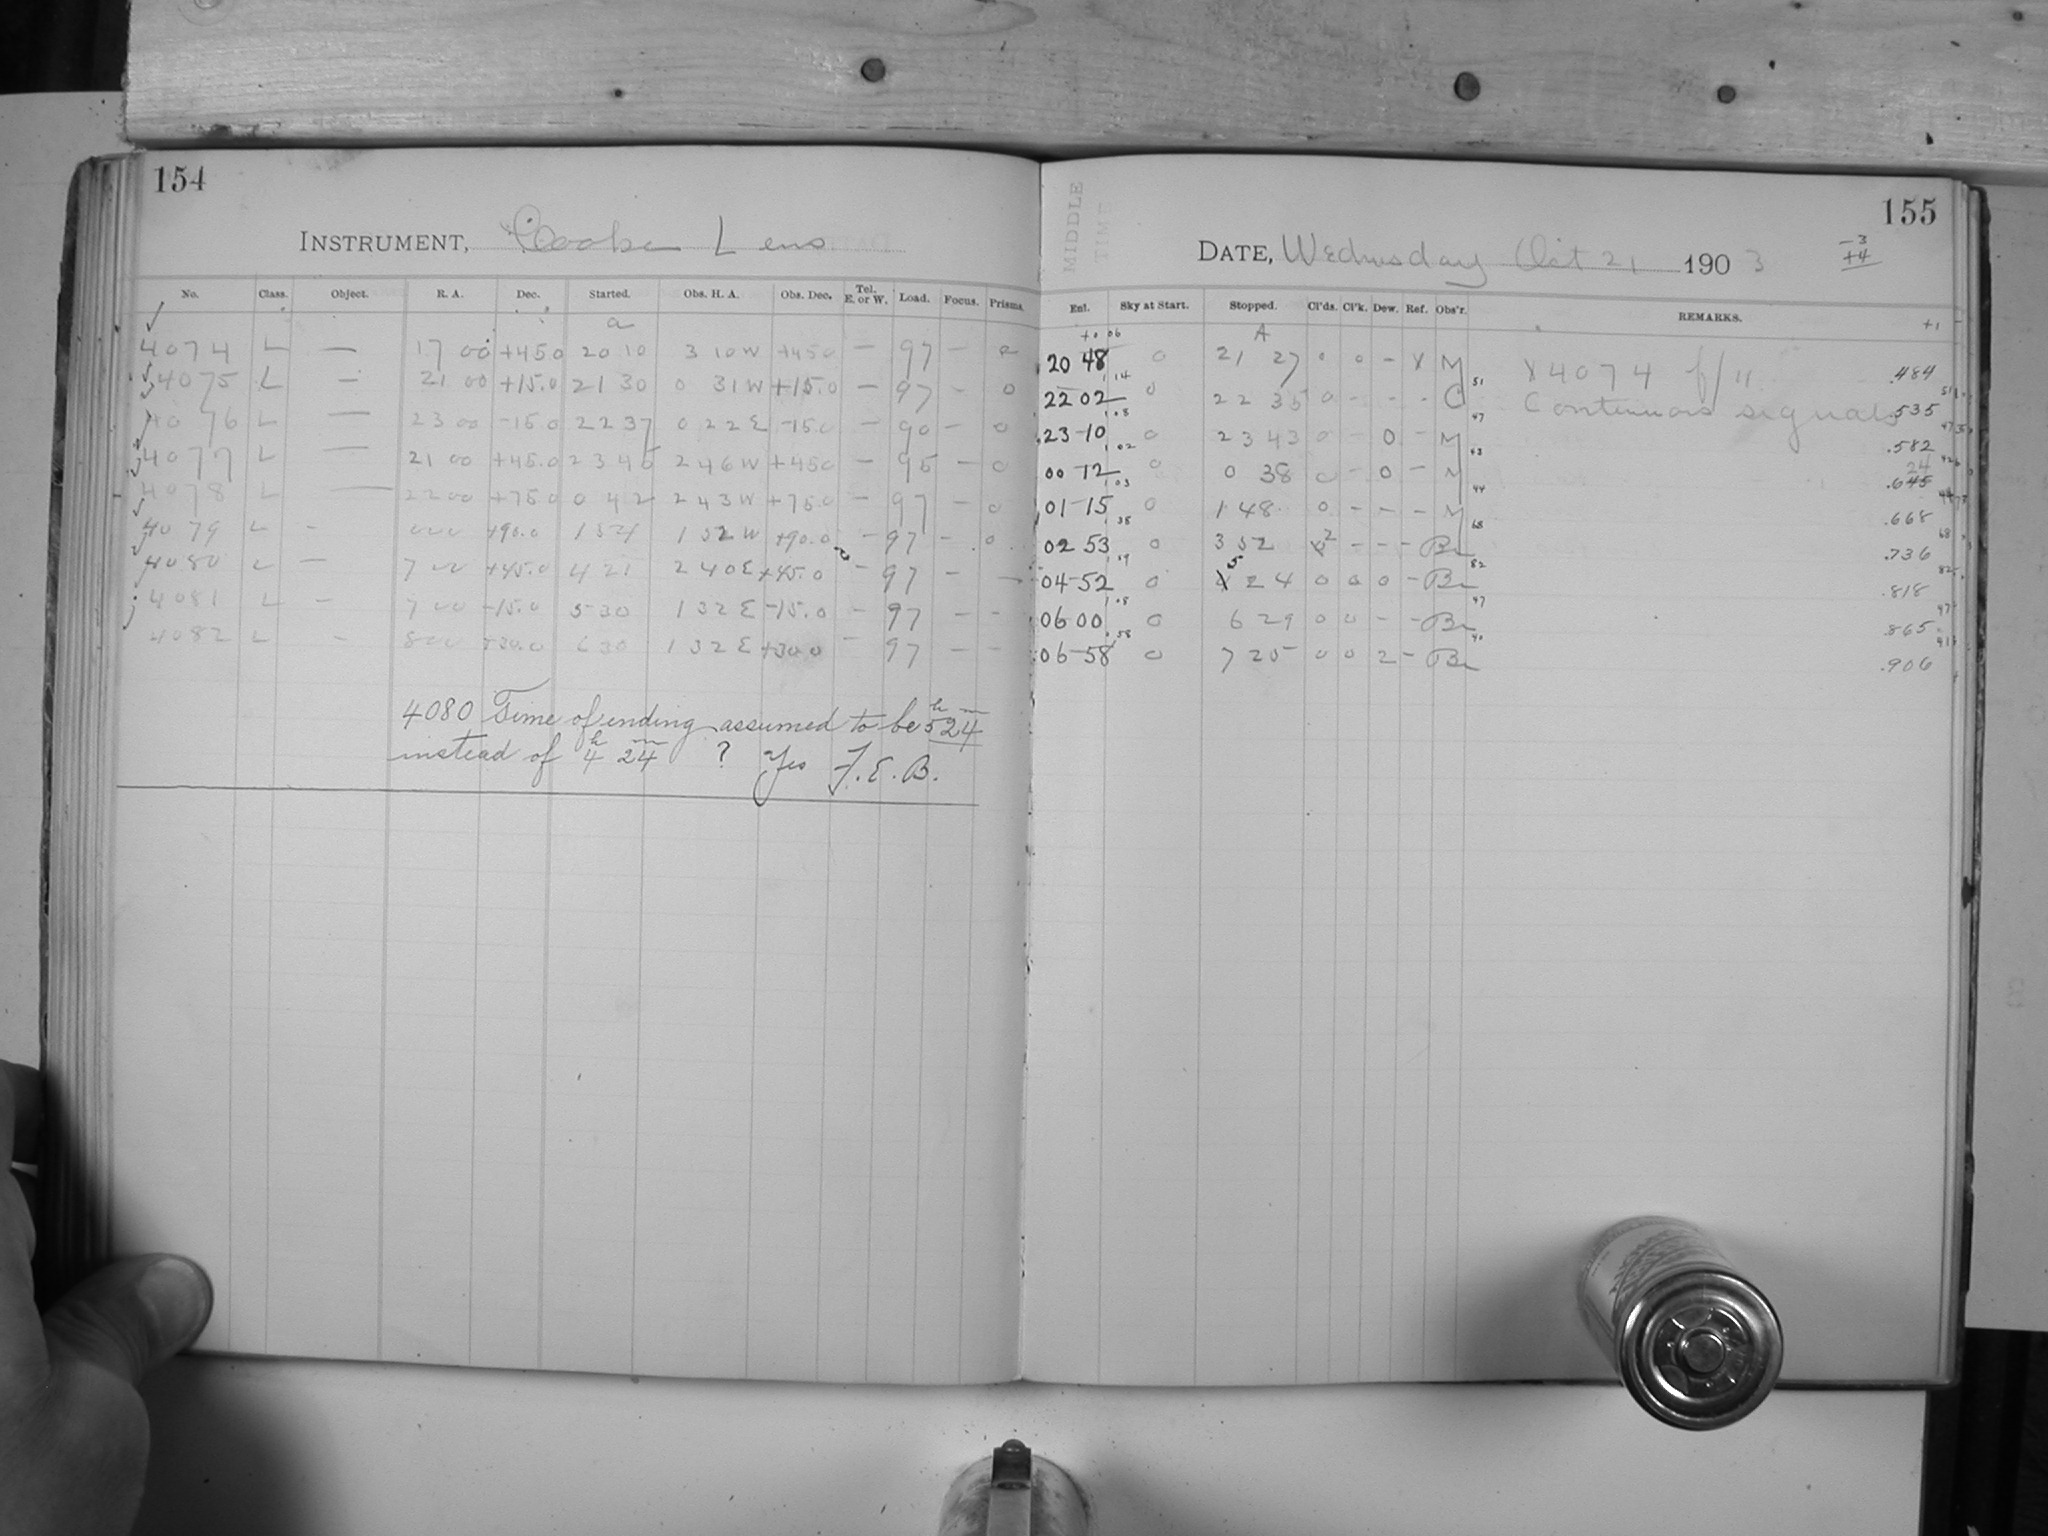 154
INSTRUMENT, Cooke Lens
No. Class. Object. R. A. Dec. Started. Obs. H. A. Obs. Dec. Tel. E. or W. Load. Focus. Prisms.
a
4074 L — 17 00 +45.0 20 10 3 10 W +45.0 — 97 — 0
4075 L — 21 00 +15.0 21 30 0 31 W +15.0 — 97 — 0
4076 L — 23 00 -15.0 22 37 0 22 E -15.0 — 90 — 0
4077 L — 21 00 +45.0 23 45 2 46 W +45.0 — 95 — 0
4078 L — 22 00 +75.0 0 42 2 43 W +75.0 — 97 — 0
4079 L — 0 00 +90.0 1 54 1 52 W +90.0 — 97 — 0
4080 L — 7 00 +45.0 4 21 2 40 E +45.0 — 97 — —
4081 L — 7 00 -15.0 5 30 1 32 E -15.0 — 97 — —
4082 L — 8 00 +30.0 6 30 1 32 E +30.0 — 97 — —
4080 Time of ending assumed to be 5h 24m
instead of 4h 24m ? Yes F. E. B.
155
MIDDLE
TIME
DATE, Wednesday Oct 21 1903
-3
+4
Enl. Sky at Start. Stopped. Cl'ds. Cl'k. Dew. Ref. Obs'r. REMARKS.
+0 06 A +1
20 48 0 21 27 0 0 - X M X 4074 f/11 .484
1 14 51
22 02 0 22 35 0 - - - C Continuous signals .535
1 08 47
23-10 0 23 43 0 - 0 - M .582
1 02 43
24
00 12 0 0 38 0 - 0 - M .645
1 03 44
01-15 0 1 48 0 - - - M .668
1 38 68
02 53 0 3 52 2 - - - Br .736
1 59 82
04-52 0 5 24 0 0 0 - Br .818
1 08 47
06 00 0 6 29 0 0 - - Br .865
0 58 40
06-58 0 7 25 0 0 2 - Br .906